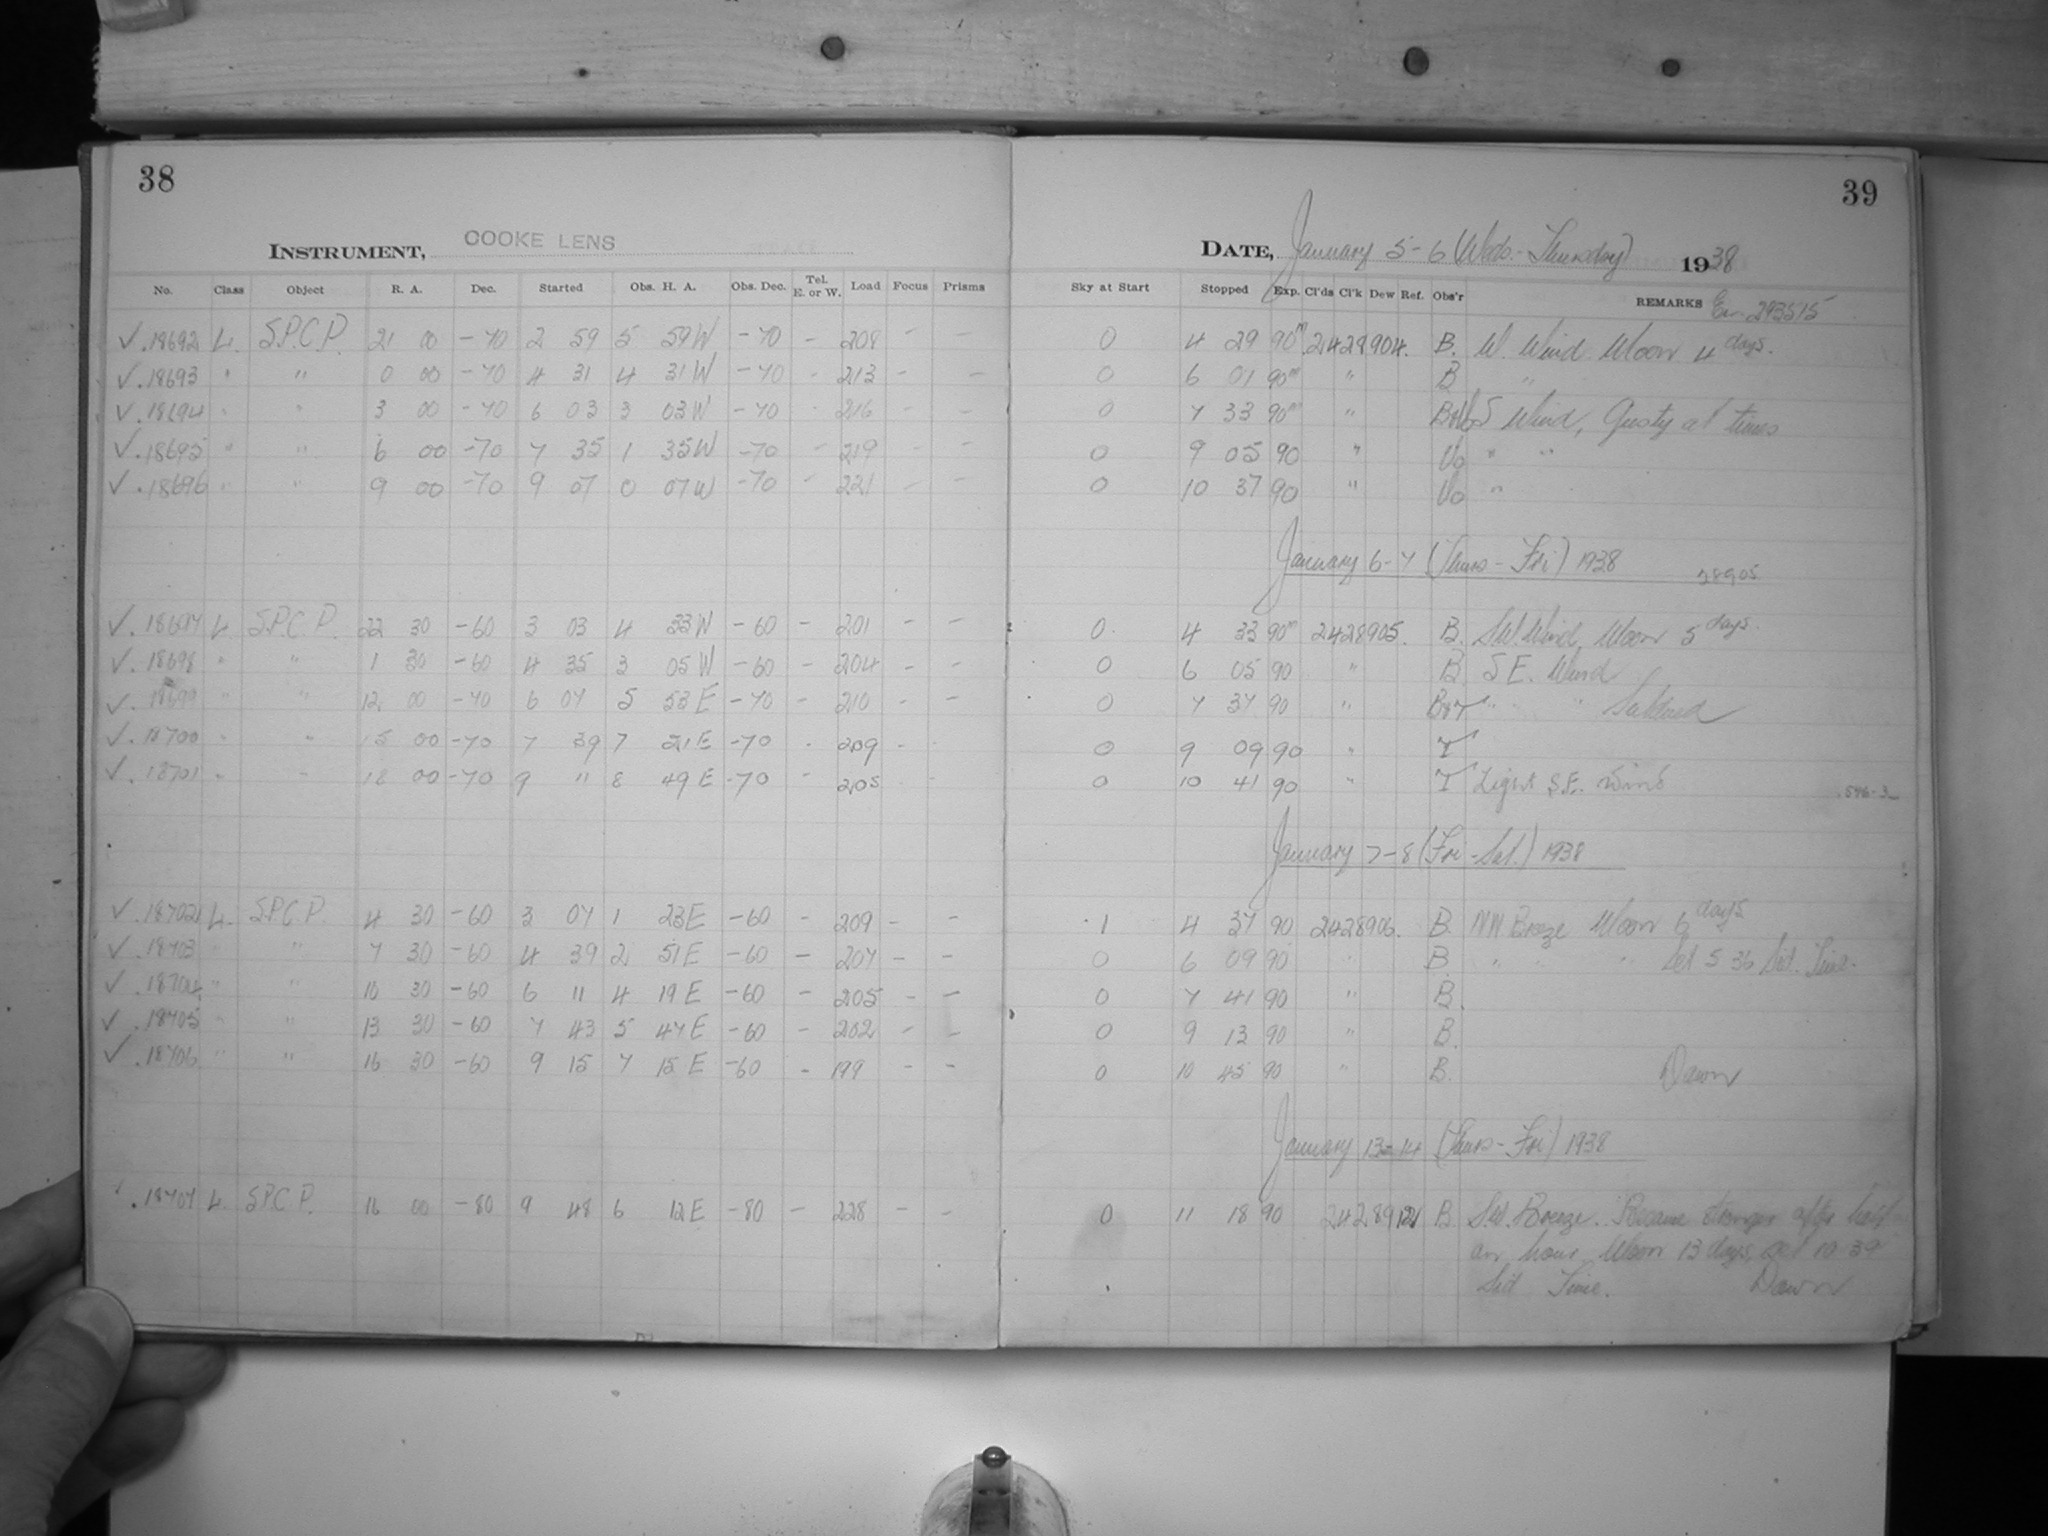 38
39
INSTRUMENT, COOKE LENS
DATE, January 5-6 (Weds.-Thursday) 1938
No. Class Object R. A. Dec. Started Obs. H. A. Obs. Dec. Tel. E. or W. Load Focus Prisms Sky at Start Stopped Exp. Cl'ds Cl'k Dew Ref. Obs'r REMARKS
✓ .18692 L. S.P.C.P. 21 00 -70 2 59 5 59W -70 - 208 - - 0 4 29 90m 2428904. B. W. Wind Moon 4 days.
✓ .18693 " " 0 00 -70 4 31 4 31W -70 - 213 - - 0 6 01 90m " B "
✓ .18694 " " 3 00 -70 6 03 3 03W -70 - 216 - - 0 7 33 90m " S Wind, Gusty at times
✓ .18695 " " 6 00 -70 7 35 1 35W -70 - 219 - - 0 9 05 90 " Vo " "
✓ .18696 " " 9 00 -70 9 07 0 07W -70 - 221 - - 0 10 37 90 " Vo "
January 6-7 (Thurs-Fri) 1938 28905
✓ .18697 L S.P.C.P. 22 30 -60 3 03 4 33W -60 - 201 - - 0 4 33 90m 2428905. B. SW. Wind, Moon 5 days.
✓ .18698 " " 1 30 -60 4 35 3 05W -60 - 204 - - 0 6 05 90 " B S E. Wind
✓ .18699 " " 12 00 -70 6 07 5 53E -70 - 210 - - 0 7 37 90 " B&T " "
✓ .18700 " " 15 00 -70 7 39 7 21E -70 - 209 - 0 9 09 90 " T
✓ .18701 " " 18 00 -70 9 11 8 49E -70 - 205 0 10 41 90 " T Light S.E. wind
January 7-8 (Fri-Sat.) 1938
✓ .18702 L. S.P.C.P. 4 30 -60 3 07 1 23E -60 - 209 - - 1 4 37 90 2428906. B. NW Breeze Moon 6 days
✓ .18703 " " 7 30 -60 4 39 2 51E -60 - 207 - - 0 6 09 90 " B " " " Set 5 36 Sid. Time.
✓ .18704 " " 10 30 -60 6 11 4 19E -60 - 205 - - 0 7 41 90 " B.
✓ .18705 " " 13 30 -60 7 43 5 47E -60 - 202 - - 0 9 13 90 " B.
✓ .18706 " " 16 30 -60 9 15 7 15E -60 - 199 - - 0 10 45 90 " B. Dawn
January 13-14 (Thurs-Fri) 1938
✓ .18707 L. S.P.C.P. 16 00 -80 9 48 6 12E -80 - 228 - - 0 11 18 90 B SW. Breeze. Became stronger after half
an hour. Moon 13 days, set 10 39
Sid Time. Dawn